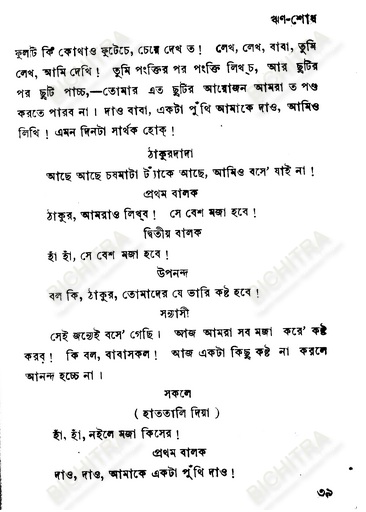 ঋণ-শোধ
ফুলটি কি কোথাও ফুটেচে, চেয়ে দেখ ত! লেখ, লেখ, বাবা, তুমি
লেখ, আমি দেখি! তুমি পংক্তির পর পংক্তি লিখ্‌চ, আর ছুটির
পর ছুটি পাচ্চ,—তোমার এত ছুটির আয়োজন আমরা ত পণ্ড
করতে পারব না। দাও বাবা, একটা পুঁথি আমাকে দাও, আমিও
লিখি! এমন দিনটা সার্থক হোক্!
ঠাকুরদাদা
আছে আছে চষমাটা ট্যাঁকে আছে, আমিও বসে' যাই না!
প্রথম বালক
ঠাকুর, আমরাও লিখ্‌ব! সে বেশ মজা হবে!
দ্বিতীয় বালক
হাঁ হাঁ, সে বেশ মজা হবে!
উপনন্দ
বল কি, ঠাকুর, তোমাদের যে ভারি কষ্ট হবে!
সন্ন্যাসী
সেই জন্যেই বসে' গেছি। আজ আমরা সব মজা করে' কষ্ট
করব্! কি বল, বাবাসকল! আজ একটা কিছু কষ্ট না করলে
আনন্দ হচ্চে না।
সকলে
(হাততালি দিয়া)
হাঁ, হাঁ, নইলে মজা কিসের!
প্রথম বালক
দাও, দাও, আমাকে একটা পুঁথি দাও!
৩৯
BICHITRA